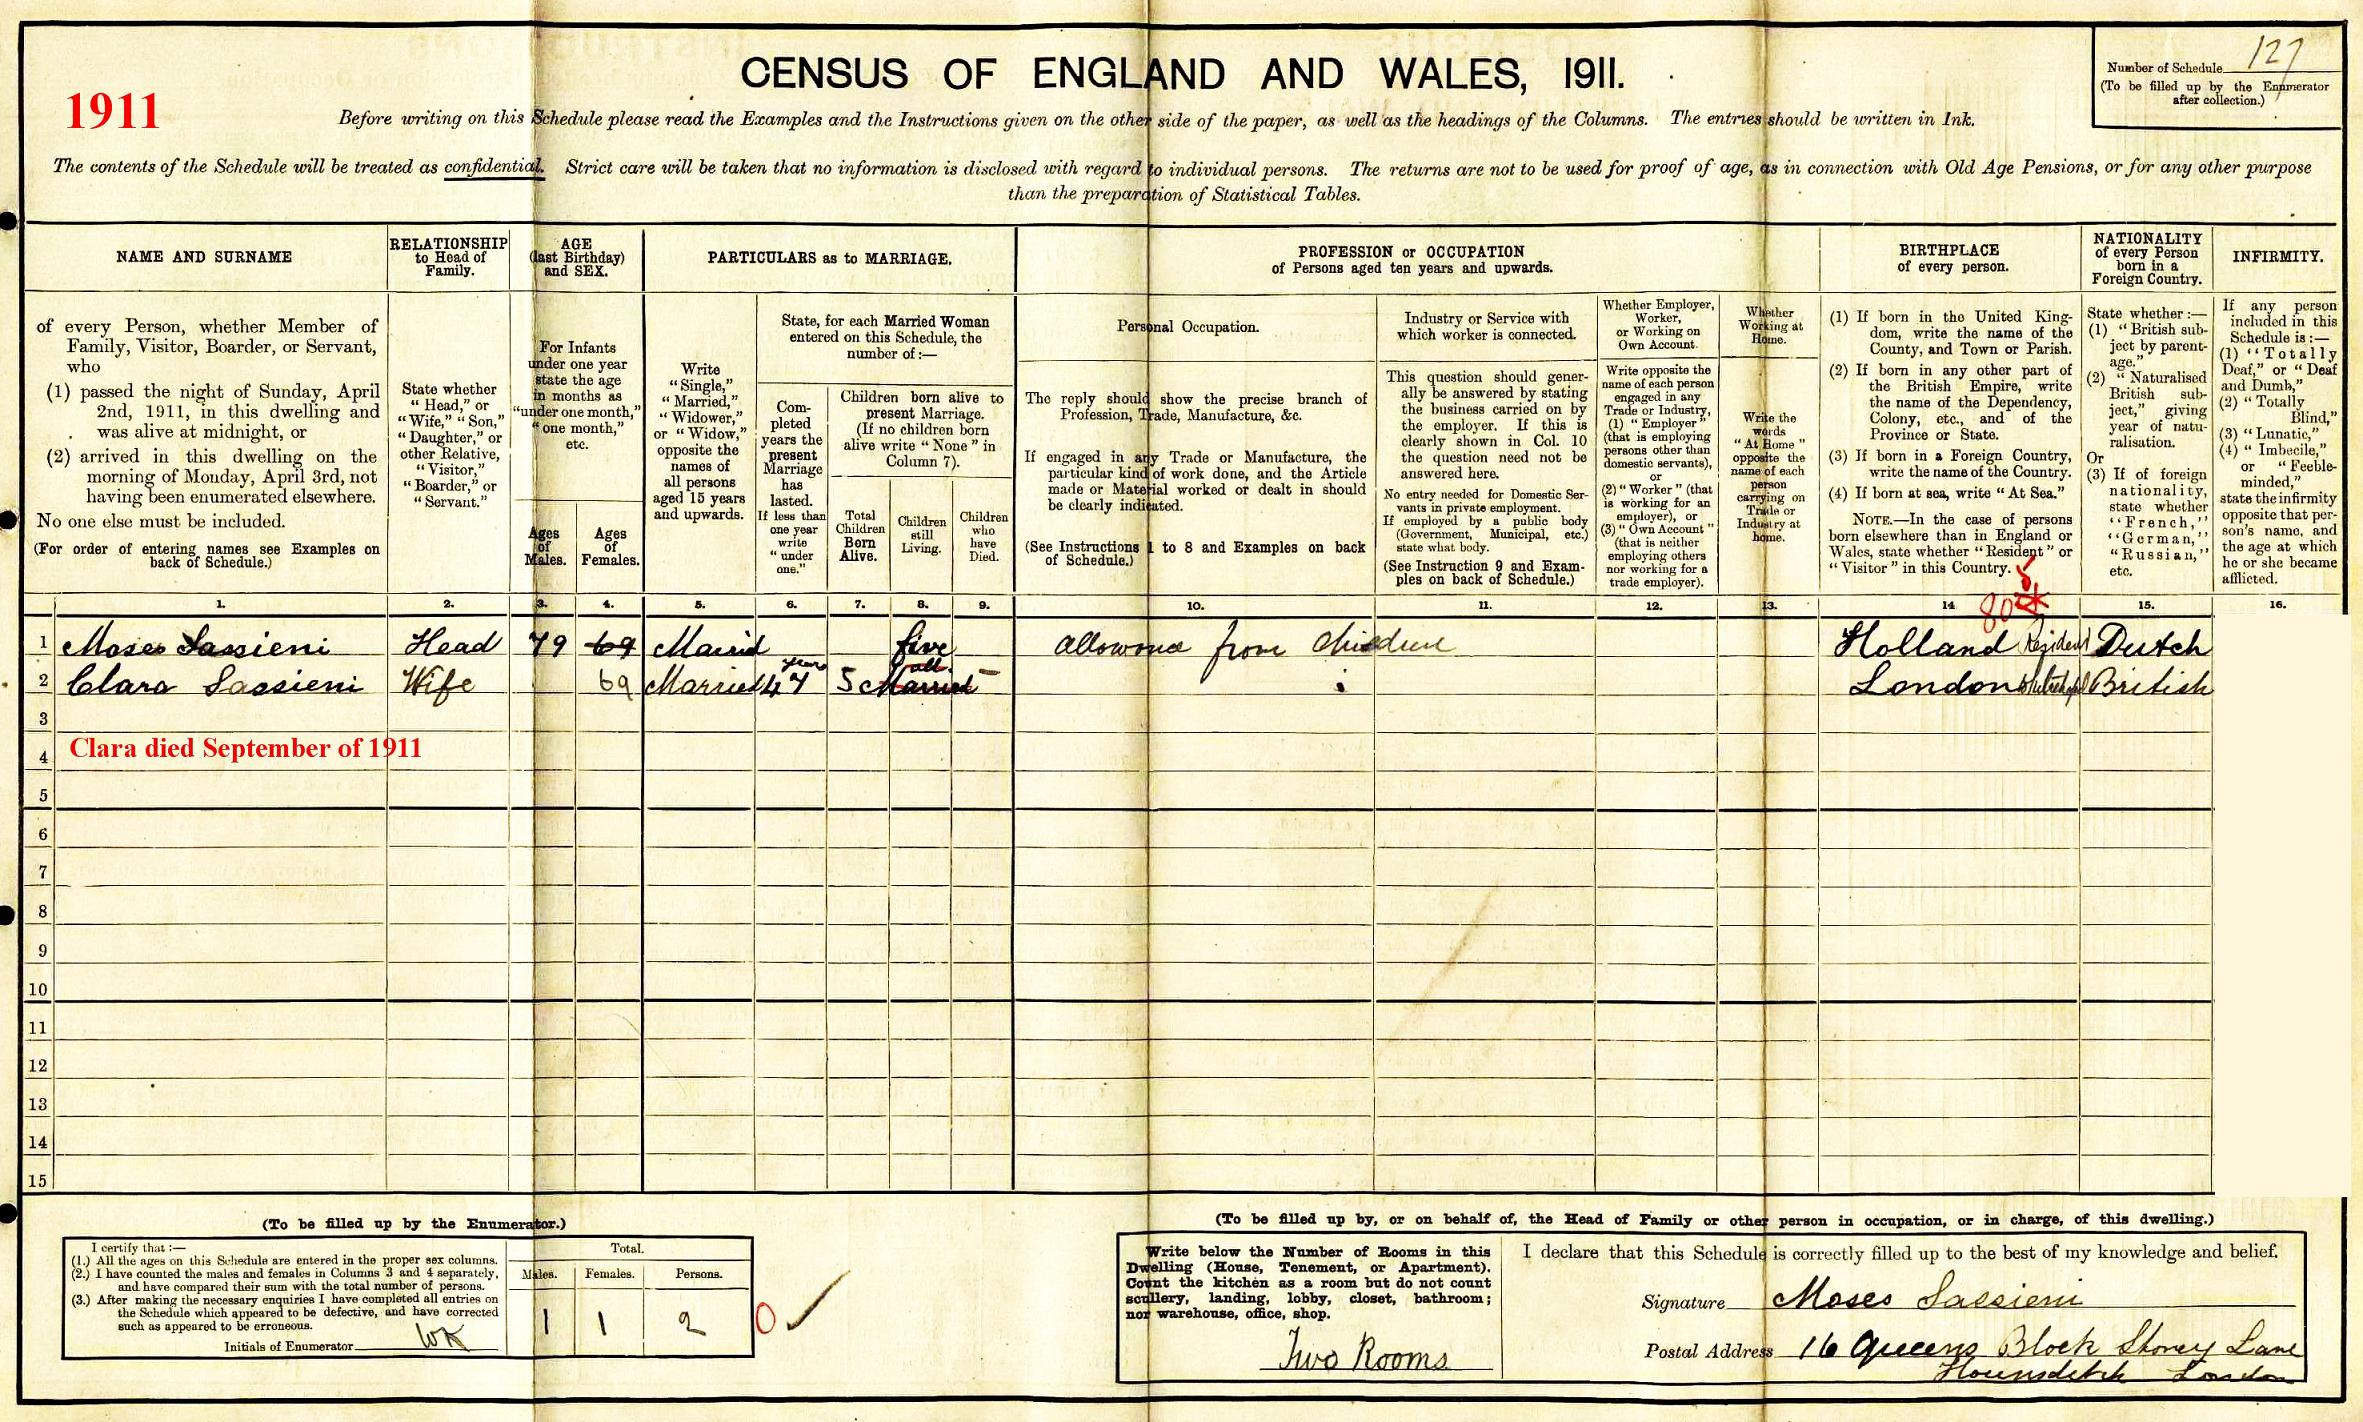 CENSUS OF ENGLAND AND WALES, 1911.
Number of Schedule 127
(To be filled up by the Enumerator
after collection.)
1911
Before writing on this Schedule please read the Examples and the Instructions given on the other side of the paper, as well as the headings of the Columns. The entries should be written in Ink.
The contents of the Schedule will be treated as confidential. Strict care will be taken that no information is disclosed with regard to individual persons. The returns are not to be used for proof of age, as in connection with Old Age Pensions, or for any other purpose
than the preparation of Statistical Tables.
NAME AND SURNAME
of every Person, whether Member of
Family, Visitor, Boarder, or Servant,
who
(1) passed the night of Sunday, April
2nd, 1911, in this dwelling and
was alive at midnight, or
(2) arrived in this dwelling on the
morning of Monday, April 3rd, not
having been enumerated elsewhere.
No one else must be included.
(For order of entering names see Examples on
back of Schedule.)
RELATIONSHIP
to Head of
Family.
State whether
"Head," or
"Wife," "Son,"
"Daughter," or
other Relative,
"Visitor,"
"Boarder," or
"Servant."
AGE
(last Birthday)
and SEX.
For Infants
under one year
state the age
in months as
"under one month,"
"one month,"
etc.
Ages
of
Males.
Ages
of
Females.
PARTICULARS as to MARRIAGE.
Write
"Single,"
"Married,"
"Widower,"
or "Widow,"
opposite the
names of
all persons
aged 15 years
and upwards.
State, for each Married Woman
entered on this Schedule, the
number of :—
Com-
pleted
years the
present
Marriage
has
lasted.
If less than
one year
write
"under
one."
Children born alive to
present Marriage.
(If no children born
alive write "None" in
Column 7).
Total
Children
Born
Alive.
Children
still
Living.
Children
who
have
Died.
PROFESSION or OCCUPATION
of Persons aged ten years and upwards.
Personal Occupation.
The reply should show the precise branch of
Profession, Trade, Manufacture, &c.
If engaged in any Trade or Manufacture, the
particular kind of work done, and the Article
made or Material worked or dealt in should
be clearly indicated.
(See Instructions 1 to 8 and Examples on back
of Schedule.)
Industry or Service with
which worker is connected.
This question should gener-
ally be answered by stating
the business carried on by
the employer. If this is
clearly shown in Col. 10
the question need not be
answered here.
No entry needed for Domestic Ser-
vants in private employment.
If employed by a public body
(Government, Municipal, etc.)
state what body.
(See Instruction 9 and Exam-
ples on back of Schedule.)
Whether Employer,
Worker,
or Working on
Own Account.
Write opposite the
name of each person
engaged in any
Trade or Industry,
(1) "Employer"
(that is employing
persons other than
domestic servants),
or
(2) "Worker" (that
is working for an
employer), or
(3) "Own Account"
(that is neither
employing others
nor working for a
trade employer).
Whether
Working at
Home.
Write the
words
"At Home"
opposite the
name of each
person
carrying on
Trade or
Industry at
home.
BIRTHPLACE
of every person.
(1) If born in the United King-
dom, write the name of the
County, and Town or Parish.
(2) If born in any other part of
the British Empire, write
the name of the Dependency,
Colony, etc., and of the
Province or State.
(3) If born in a Foreign Country,
write the name of the Country.
(4) If born at sea, write "At Sea."
NOTE.—In the case of persons
born elsewhere than in England or
Wales, state whether "Resident" or
"Visitor" in this Country.
NATIONALITY
of every Person
born in a
Foreign Country.
State whether :—
(1) "British sub-
ject by parent-
age."
(2) "Naturalised
British sub-
ject," giving
year of natu-
ralisation.
Or
(3) If of foreign
nationality,
state whether
"French,"
"German,"
"Russian,"
etc.
INFIRMITY.
If any person
included in this
Schedule is :—
(1) "Totally
Deaf," or "Deaf
and Dumb,"
(2) "Totally
Blind,"
(3) "Lunatic,"
(4) "Imbecile,"
or "Feeble-
minded,"
state the infirmity
opposite that per-
son's name, and
the age at which
he or she became
afflicted.
1. 2. 3. 4. 5. 6. 7. 8. 9. 10. 11. 12. 13. 14 15. 16.
1 Moses Sassieni Head 79 69 Married five allowance from children Holland Resident Dutch
2 Clara Sassieni Wife 69 Married 47 years 5 all Married London British
3
4 Clara died September of 1911
5
6
7
8
9
10
11
12
13
14
15
(To be filled up by the Enumerator.)
I certify that :—
(1.) All the ages on this Schedule are entered in the proper sex columns.
(2.) I have counted the males and females in Columns 3 and 4 separately,
and have compared their sum with the total number of persons.
(3.) After making the necessary enquiries I have completed all entries on
the Schedule which appeared to be defective, and have corrected
such as appeared to be erroneous.
Initials of Enumerator WK
Total.
Males. Females. Persons.
1 1 2
0
(To be filled up by, or on behalf of, the Head of Family or other person in occupation, or in charge, of this dwelling.)
Write below the Number of Rooms in this
Dwelling (House, Tenement, or Apartment).
Count the kitchen as a room but do not count
scullery, landing, lobby, closet, bathroom;
nor warehouse, office, shop.
Two Rooms
I declare that this Schedule is correctly filled up to the best of my knowledge and belief.
Signature Moses Sassieni
Postal Address 16 Queens Block Stoney Lane
Hounsditch London